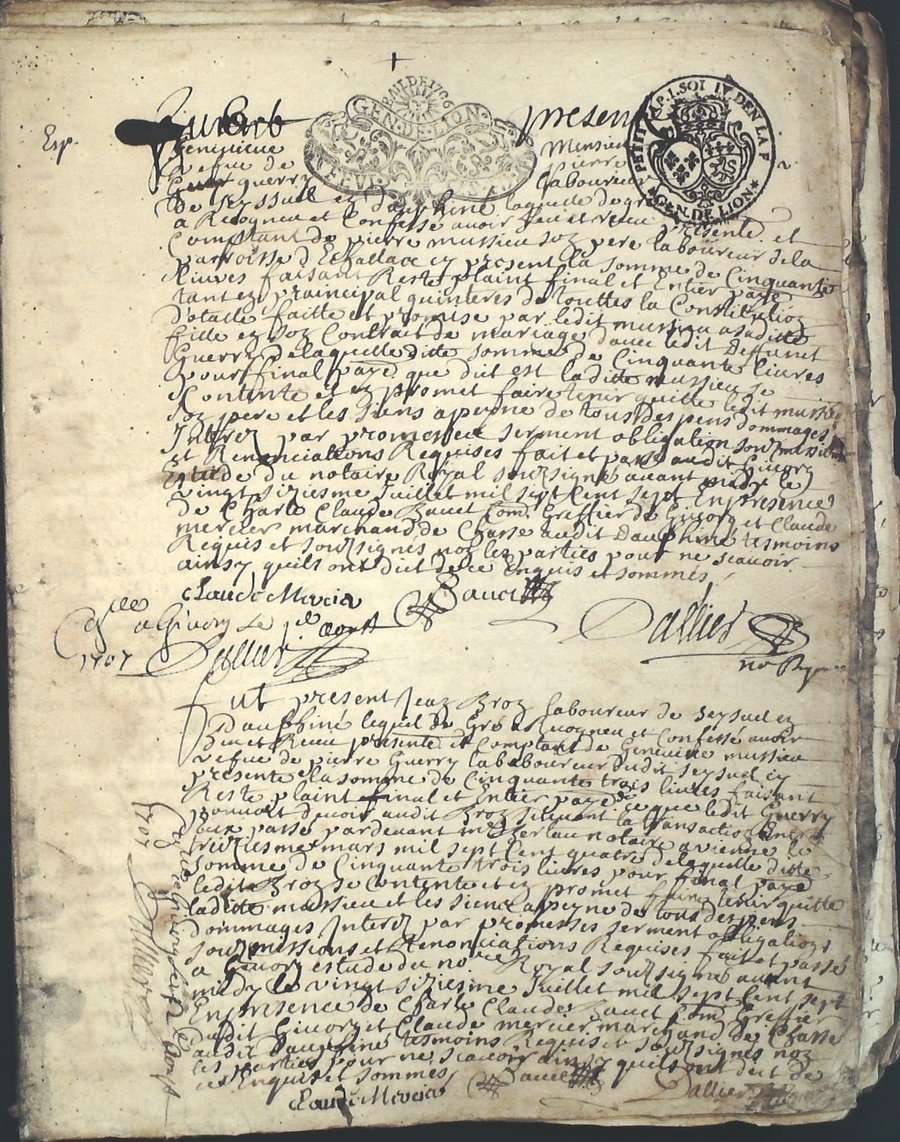 Exp.
GEN. DE LION
PETIT PAP. I. SOL IV DEN LA F
GEN. DE LION
present
Genevieve Mussieu
vefue de pierre
guerry laboureur
De Seyssuel en dauphiné laquelle de gré
a Recogneu et Confessé avoir heu et receu presente et
Comptant de pierre mussieu son pere laboureur de la
parroisse d'Echallace cy present la somme de Cinquante
Liuves faisant Reste plaint final et Entier payé
tant en principal quinteres de touttes la Constitution
Dotalle faitte et promise par ledit mussieu a saditte
fille en son Contrait de mariage dauec ledit Deffunct
Guerry delaquelle ditte somme de Cinquante liures
pour final payé que dict est laditte mussieu se
Contente et en promet faire tenir quitte ledit mussieu
son pere et les siens a peyne de tous despens dommages
Interez par promesses serment obligation soubmissions
et Renonciations Requises fait et passé audit Givory
Estude du notaire Royal soubsigné auant midy le
vingt siziesme Juillet mil sept Cent sept En presence
de Charle Claude Bauet Com. Greffier de Givory et Claude
mercier marchand de Chasse audit Dauphiné tesmoins
Requis et soubsignés non les parties pour ne scauoir
ainsy quils ont dict de ce Enquis et sommés
Claude Mercier Bauet
a Givory le aoust
1707 Dallier
Dallier
no Royal
Fut present Jean Broz laboureur de Seysuel en
Dauphiné lequel de Gré a Recogneu et Confessé avoir
heu et Receu presente et Comptant de Genevieve mussieu
vefue de pierre Guerry laboureur dudit Seysuel cy
presente la somme de Cinquante trois liures faisant
Reste plaint final et Entier payé de ce que ledit Guerry
pouuoit deuoir audit Broz suiuant la transaction Entre
eux passé pardevant notaire a vienne le
treiziesme mars mil sept Cent quatre de laquelle ditte
somme de Cinquante trois liures pour final payé
ledit Broz se Contente et en promet faire tenir quitte
laditte mussieu et les siens a peyne de tous despens
Dommages Interez par promesses serment obligations
soubmissions et Renonciations Requises fait et passé
a Givory estude du no.re Royal soubsigné auant
midy le vingt siziesme Juillet mil sept Cent sept
En presence de Charle Claude Bauet Com. Greffier
dudit Givory et Claude mercier marchand de Chasse
audit Dauphiné tesmoins Requis et soubsignés non
les parties pour ne scauoir ainsy quils ont dict de
ce Enquis et sommés
Claude Mercier Bauet Dallier
1707